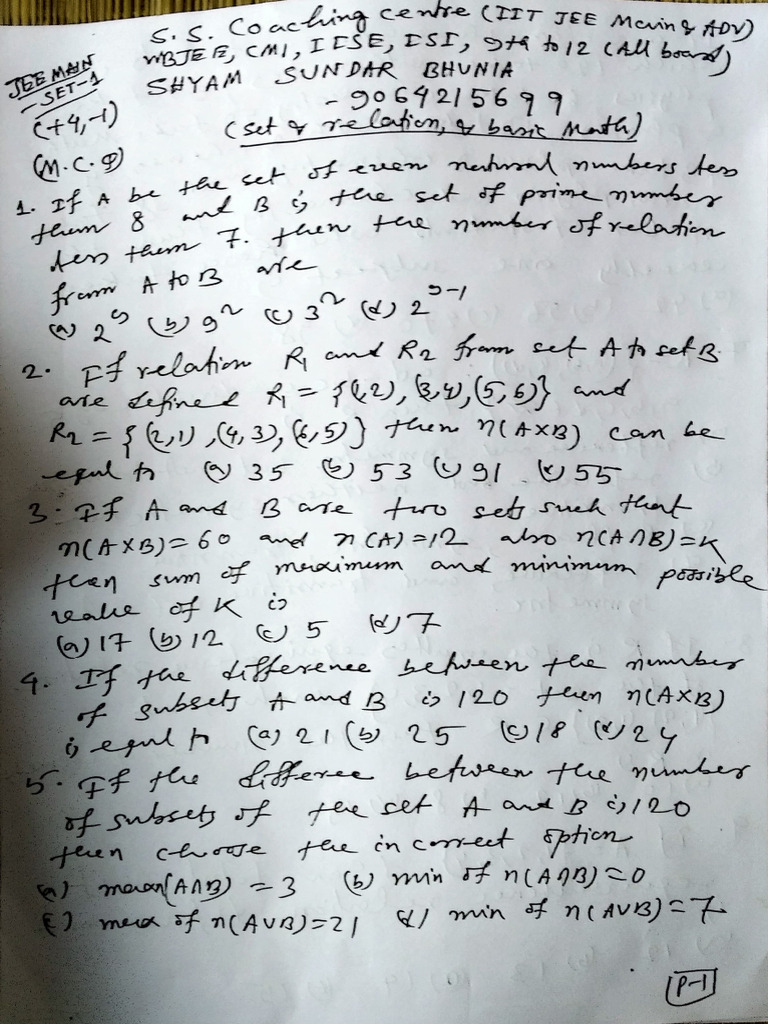 S.S. Coaching centre (IIT JEE Main & ADV)
WBJEE, CMI, IISE, ISI, 9th to 12 (All board)
JEE MAIN
- SET-1
SHYAM SUNDAR BHUNIA
- 9064215699
(+4,-1)
(set & relation, & basic Math)
(M.C.Q)
1. If A be the set of even natural numbers less
than 8 and B is the set of prime number
less than 7. then the number of relation
from A to B are
(a) 2⁹ (b) 9² (c) 3² (d) 2⁹⁻¹
2. If relation R₁ and R₂ from set A to set B
are defined R₁ = {(1,2), (3,4), (5,6)} and
R₂ = {(2,1), (4,3), (6,5)} then n(A×B) can be
equl to (a) 35 (b) 53 (c) 91 (d) 55
3. If A and B are two sets such that
n(A×B)=60 and n(A)=12 also n(A∩B)=K
then sum of maximum and minimum possible
value of K is
(a) 17 (b) 12 (c) 5 (d) 7
4. If the difference between the number
of subsets A and B is 120 then n(A×B)
is equl to (a) 21 (b) 25 (c) 18 (d) 24
5. If the differee between the number
of subsets of the set A and B is 120
then choose the in correct option
(a) max(A∩B) = 3 (b) min of n(A∩B)=0
(c) max of n(A∪B)=21 (d) min of n(A∪B)=7
P-1